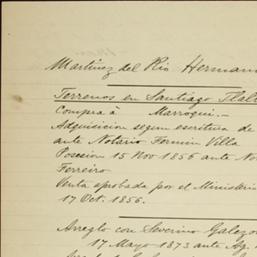 Martinez del Rio Herman
Terrenos en Santiago Tlalt
Compra á Marroqui.—
Adquisicion segun escritura de
ante Notario Fermin Villa
Posesion 15 Nov 1856 ante No
Ferreiro
Venta aprobada por el Ministeri
17 Oct. 1856.
Arreglo con Severino Galezo
17 Mayo 1873 ante Ag.